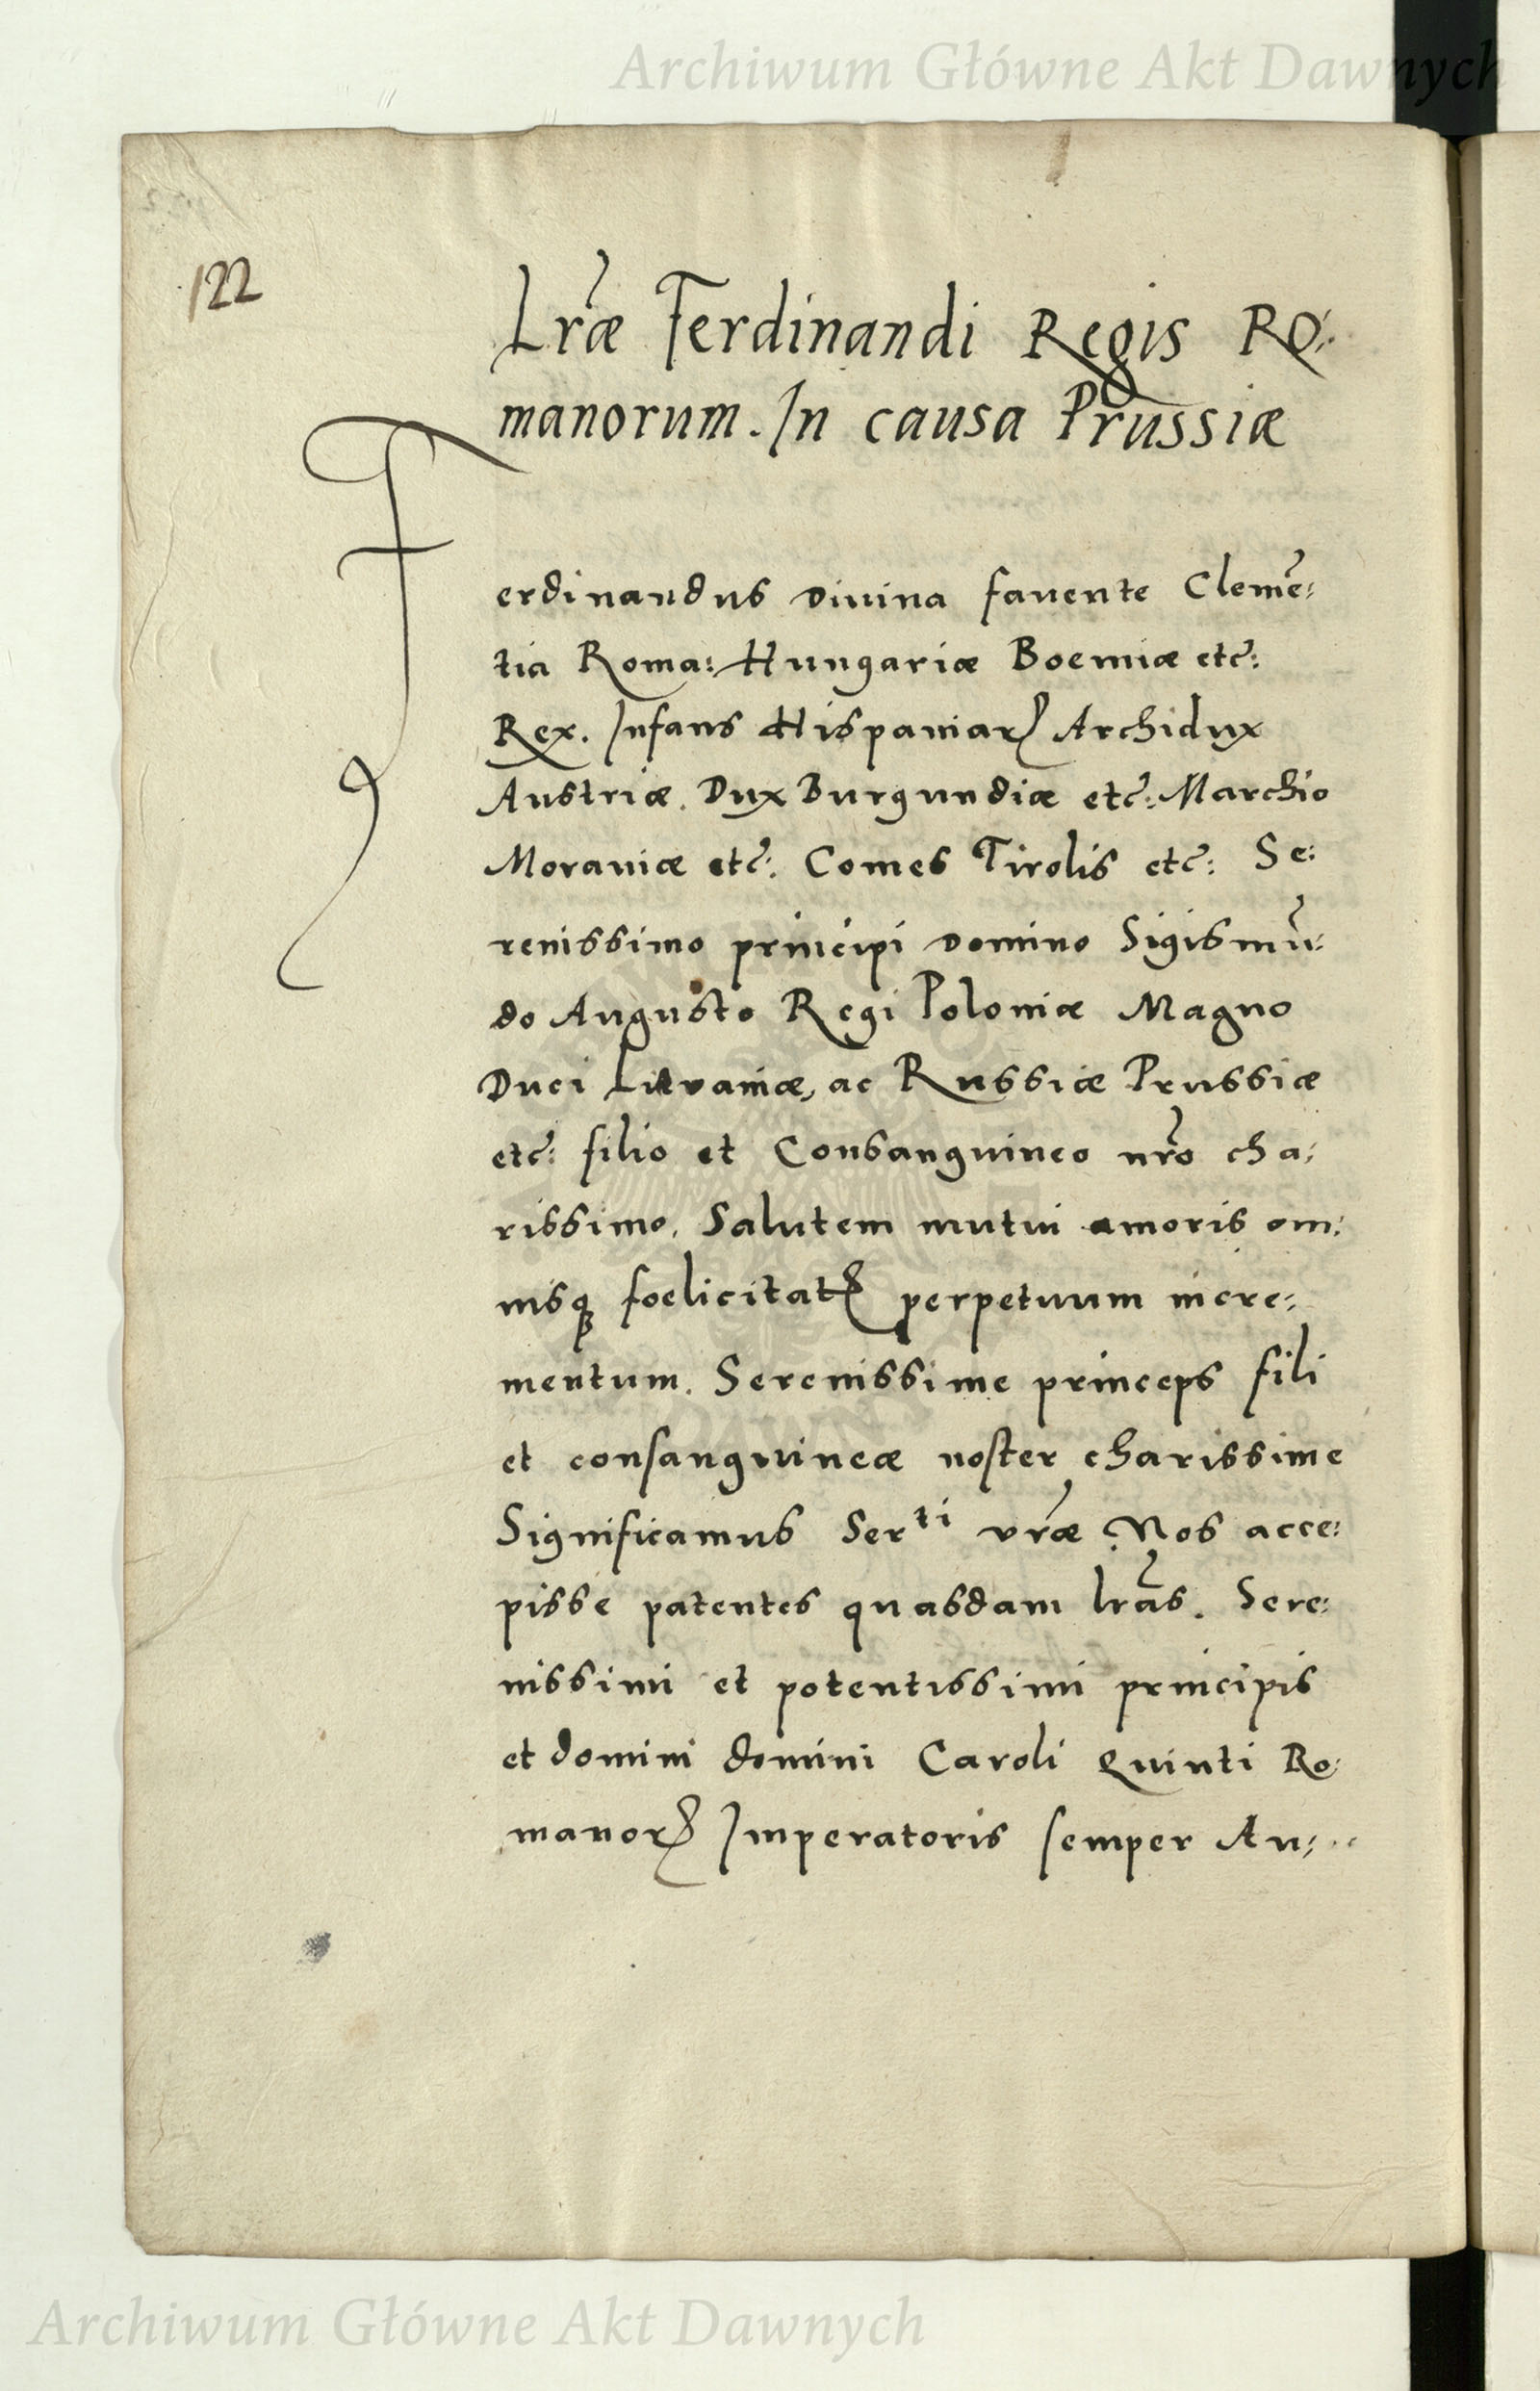 Archiwum Główne Akt Dawnych
122
Lr̃æ Ferdinandi Regis Ro:
manorum. In causa Prussiæ
Ferdinandus Diuina fauente Clemẽ:
tia Roma: Hungariæ Boemiæ etc̃:
Rex. Infans Hispaniarꝝ Archidux
Austriæ. Dux Burgundiæ etc̃: Marchio
Morauiæ etc̃. Comes Tirolis etc̃: Se:
renissimo principi Domino Sigismũ:
do Augusto Regi Poloniæ Magno
Duci Lituaniæ, ac Russiæ Prussiæ
etc̃: filio et Consanguineo nr̃o cha:
rissimo. Salutem mutui amoris om:
nisqꝫ foelicitatꝭ perpetuum incre:
mentum. Serenissime princeps fili
et consanguineæ noster charissime
Significamus Ser^ti vr̃æ Nos acce:
pisse patentes quasdam lr̃as. Sere:
nissimi et potentissimi principis
et domini domini Caroli Quinti Ro:
manorꝝ Imperatoris semper Au:
Archiwum Główne Akt Dawnych